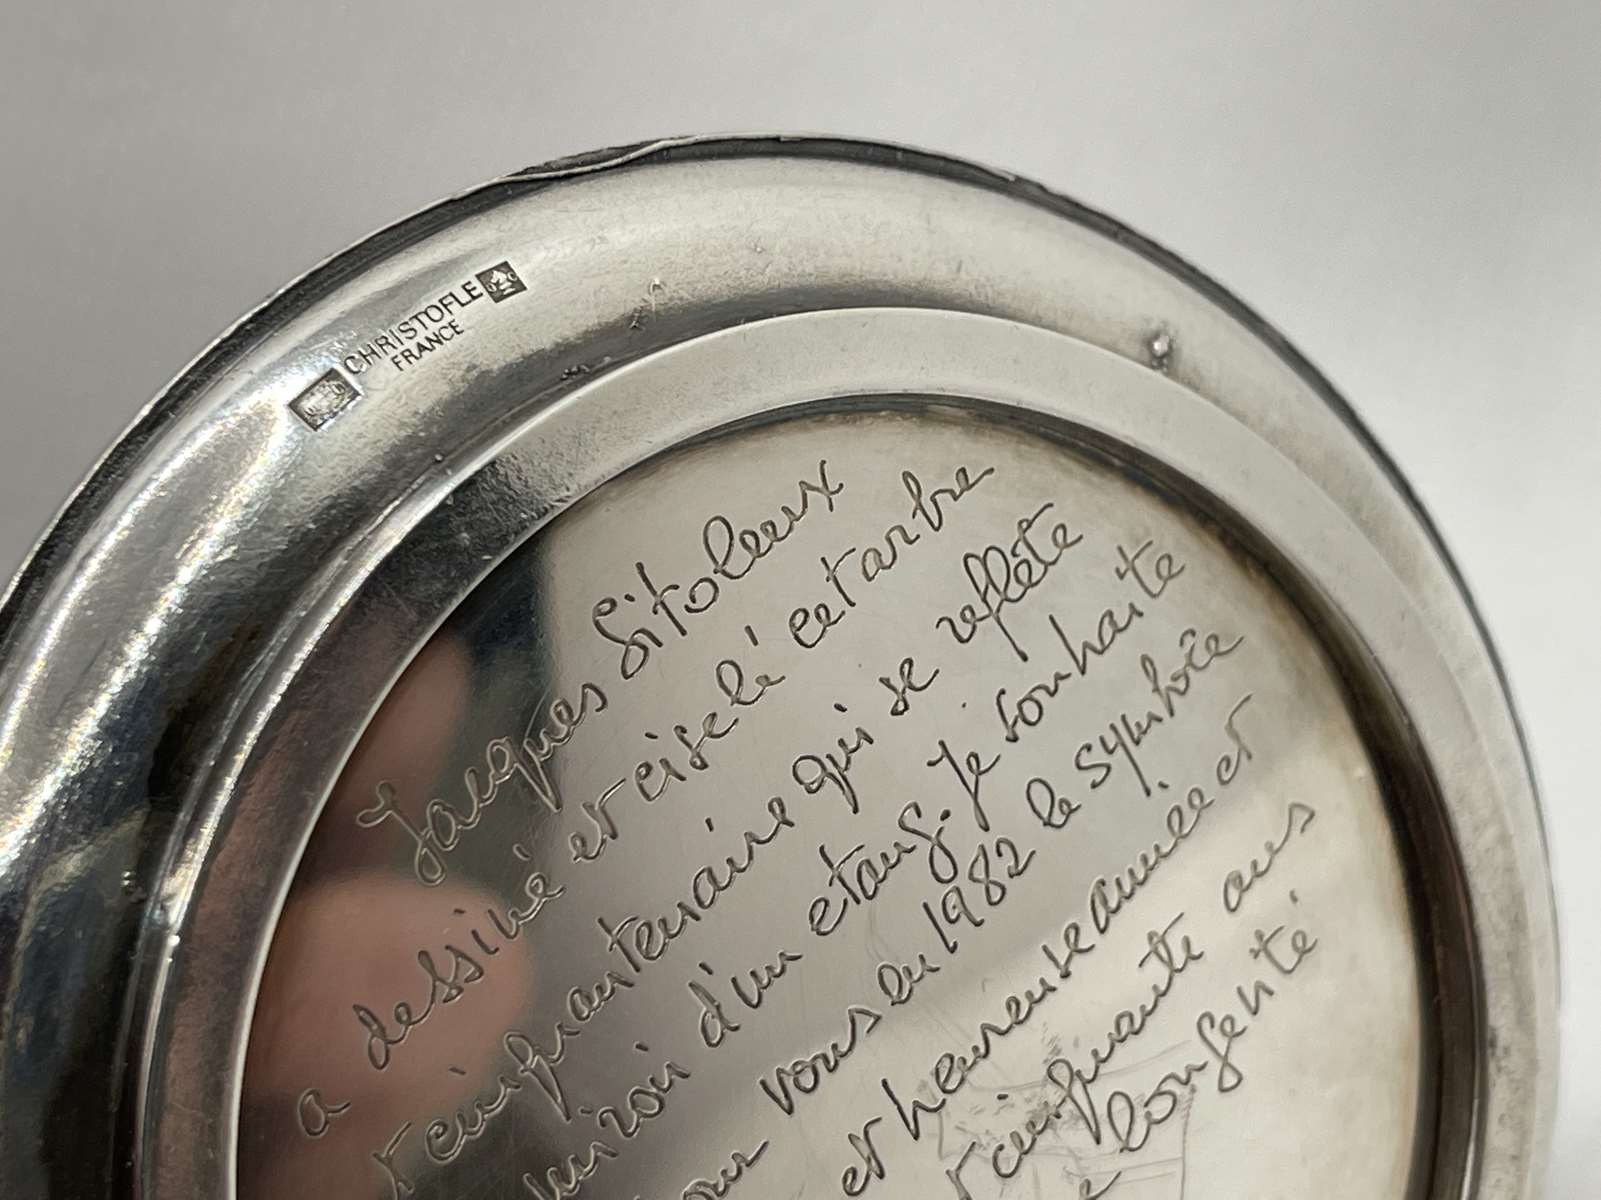 CHRISTOFLE
FRANCE
Jacques Sitoleux
a dessiné et ciselé cet arbre
cinquantenaire qui se reflète
miroir d'un etang. Je souhaite
vous en 1982 le symbole
et heureuse année et
cinquante ans
longénité